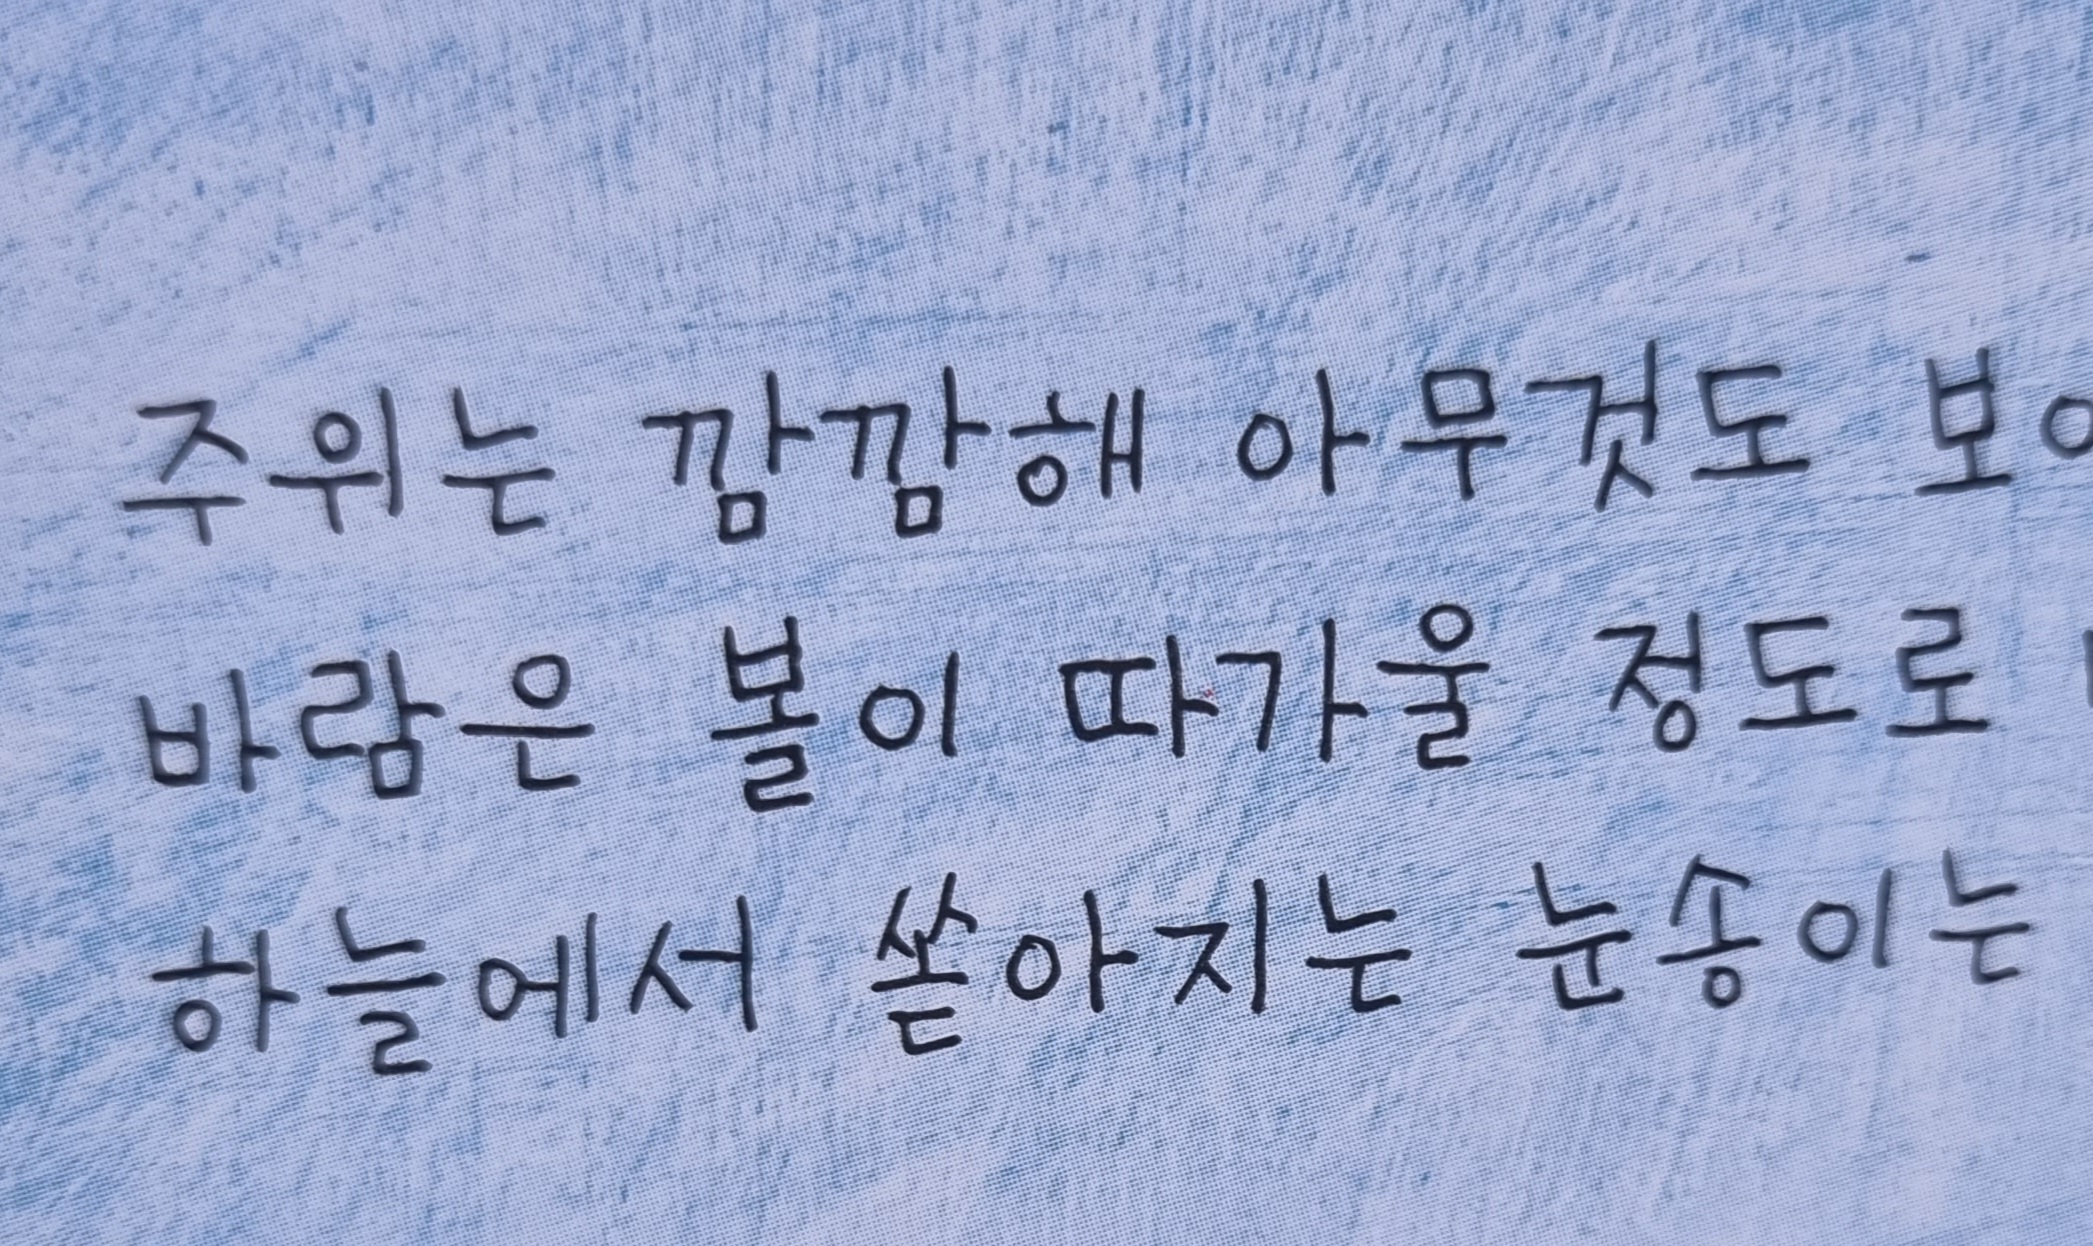 주위는 깜깜해 아무것도
바람은 볼이 따가울 정도로
하늘에서 쏟아지는 눈송이는